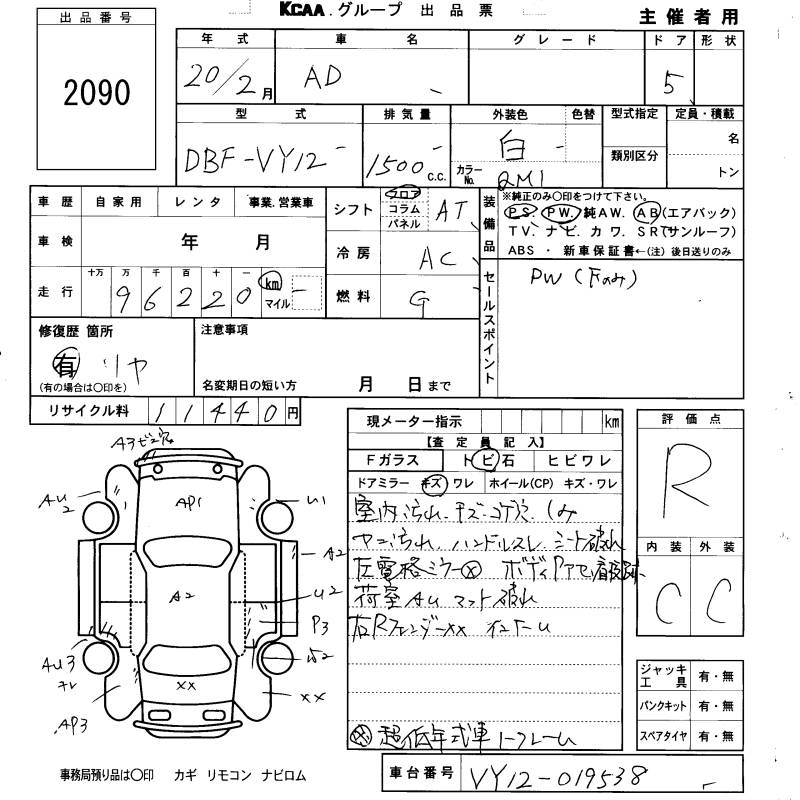 KCAA.グループ 出品票
主催者用
出品番号
2090
年式 車名 グレード ドア 形状
20/2月 AD 5
型式 排気量 外装色 色替 型式指定 定員・積載
DBF-VY12 1500c.c. 白 名
カラーNo. QM1 類別区分 トン
車歴 自家用 レンタ 事業.営業車
シフト フロア コラム パネル AT
装備品 ※純正のみ○印をつけて下さい。
PS. PW. 純AW. AB(エアバック)
TV. ナビ. カワ. SR(サンルーフ)
ABS ・ 新車保証書←(注)後日送りのみ
車検 年 月
冷房 AC
走行 十万 万 千 百 十 一
96220 km マイル
燃料 G
セールスポイント
PW(Fのみ)
修復歴 箇所
有 リヤ
(有の場合は○印を)
注意事項
名変期日の短い方 月 日まで
リサイクル料 11440円
現メーター指示 km
【査定員記入】
Fガラス トビ石 ヒビワレ
ドアミラー キズ ワレ ホイール(CP) キズ・ワレ
室内汚れ.キズ.コゲ穴 しみ
ヤニ汚れ.ハンドルスレ.シート破れ
左電格ミラー× ボディ
荷室AU マット破れ
右Rフェンダーxx インナーU
※超低年式車 1-フレーム
評価点
R
内装 外装
C C
ジャッキ工具 有・無
パンクキット 有・無
スペアタイヤ 有・無
A3ビス穴
AU2
AP1
U1
A2
A2
U2
P3
AU3
AP3
XX
XX
事務局預り品は○印 カギ リモコン ナビロム
車台番号 VY12-019538